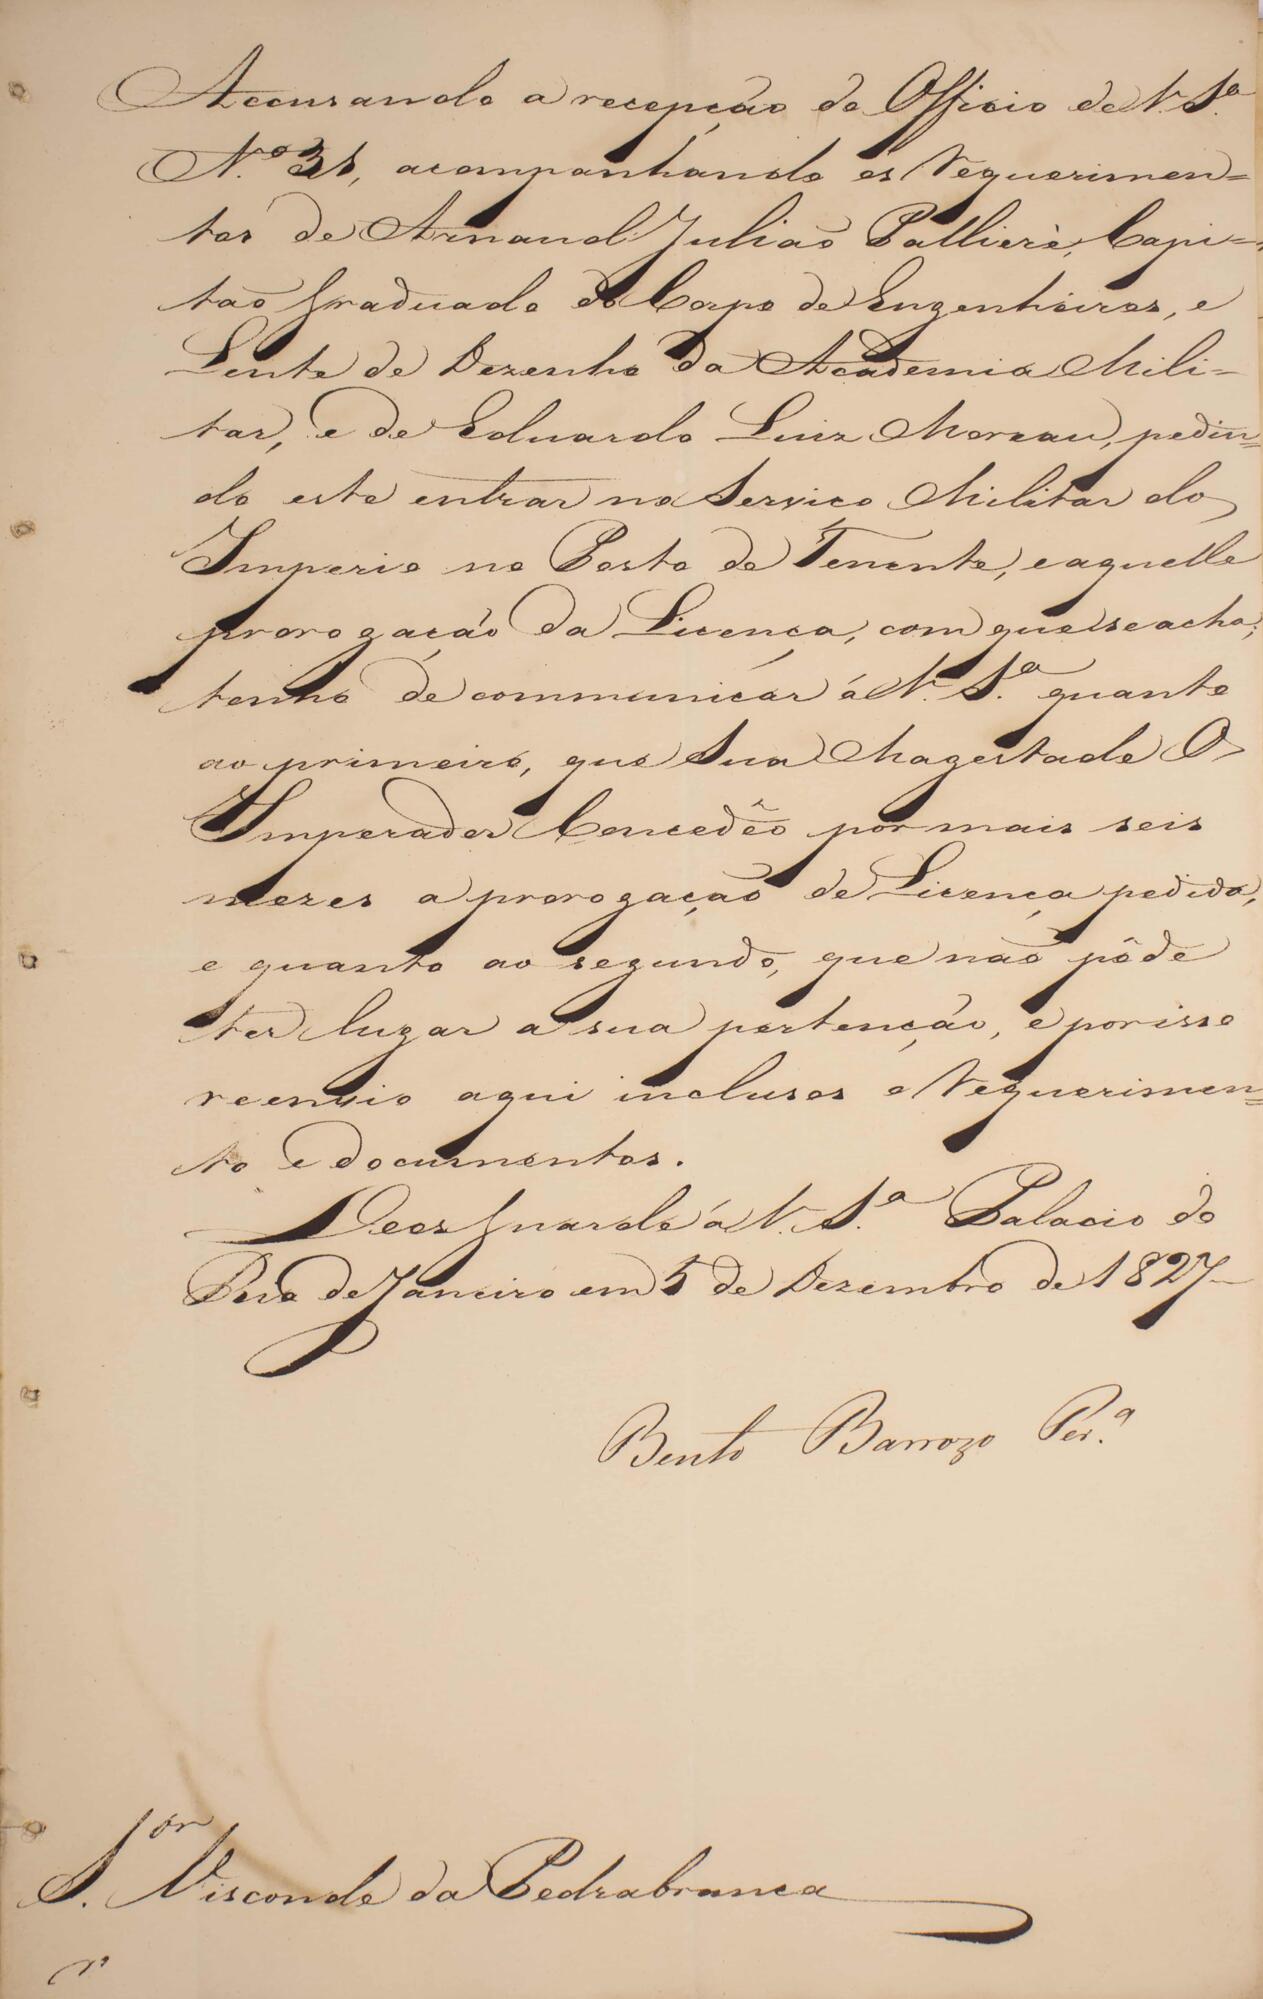 Accusando a recepção do Officio de V. S.ª
N.º 31, acompanhando os Requerimen=
tos de Arnaud Julião Pallierè, Capi=
tão Graduado do Corpo de Engenheiros, e
Lente de Dezenho da Academia Mili-
tar, e de Eduardo Luiz Moreau, pedin=
do este entrar no Serviço Militar do
Imperio no Posto de Tenente, e aquelle
prorogação da Licença, com que se acha;
tenho de communicar á V. S.ª quanto
ao primeiro, que Sua Magestade O
Imperador Concedêo por mais seis
mezes a prorogação de Licença pedida,
e quanto ao segundo, que não póde
ter lugar a sua pertenção, e por isso
reenvio aqui inclusos o Requerimen=
to e documentos.
Deos Guarde á V. S.ª Palacio do
Rio de Janeiro em 5 de Dezembro de 1827
Bento Barrozo Per.ª
S.or Visconde da Pedrabranca